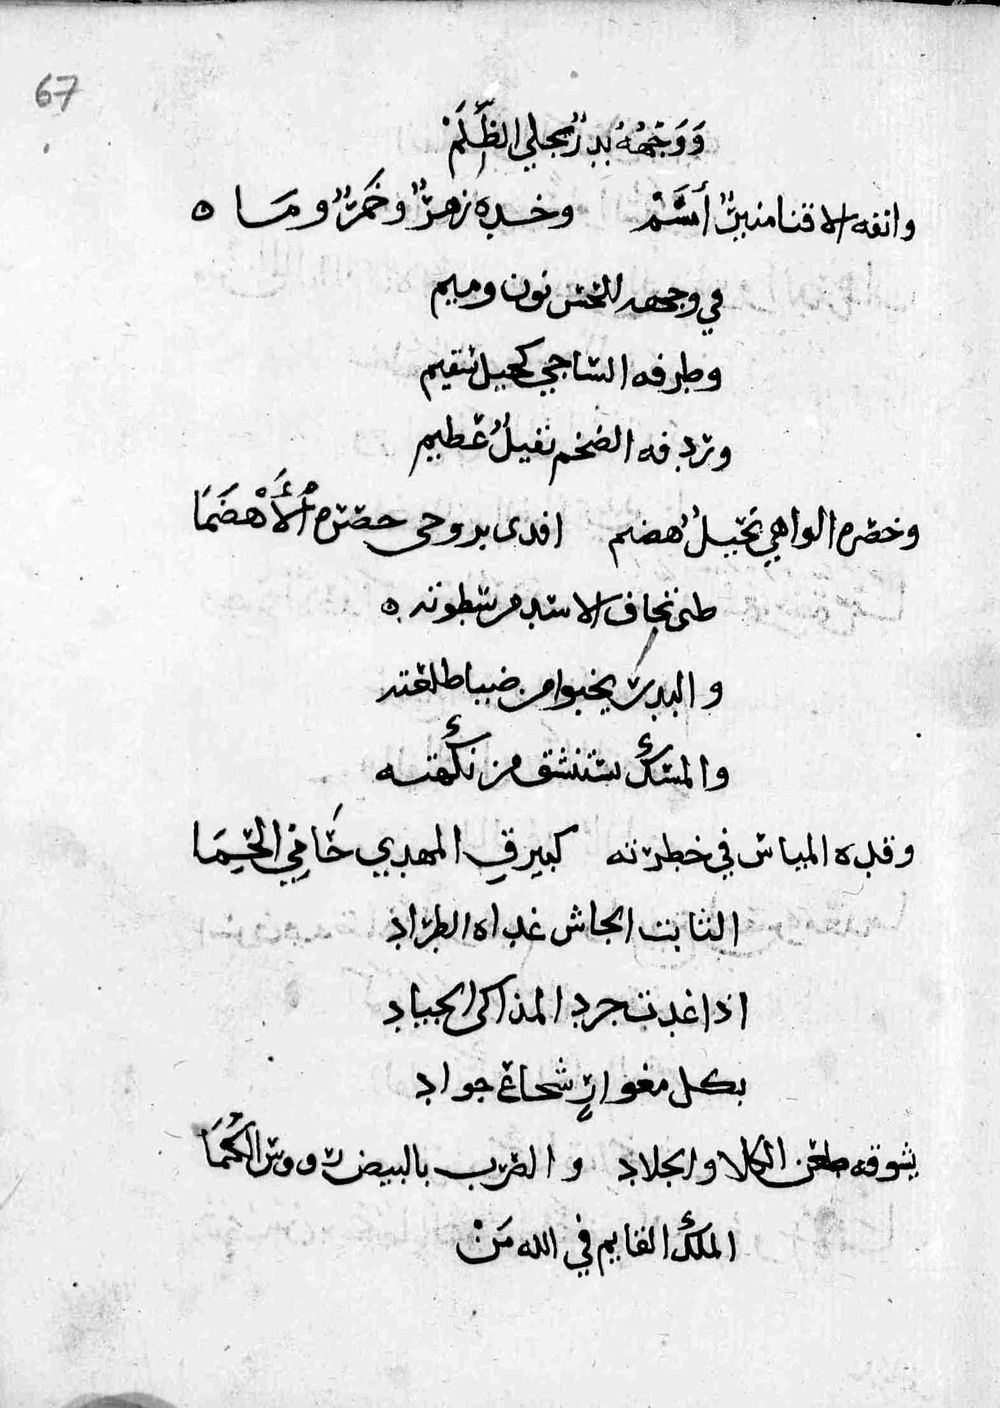 67
وَوَجْهُهُ بدرٌ يجلي الظُّلَمْ
وانفه الاقنا منيرٌ أَشَمْ وخده زهرٌ وخمرٌ وما ه
في وجهه للحسن نون وميم
وطرفه الساجي كحيل سقيم
وردفه الضخم ثقيلٌ عظيم
وخصره الواهي نحيلٌ هضم افدى بروحى خصره الأَهْضَمَا
ظبى تخاف الاسد من سطوته ه
والبدر يخبوا من ضيا طلعته
والمسك يستنشق من نكهته
وقده المياس في خطرته كبيرق المهدي حَامِي الحِمَا
الثابت الجاش غداه الطراد
اذا غدت جرد المذاكى الجياد
بكل مغوارٍ شجاع جواد
يشوقه طعن الكلا والجلاد والضرب بالبيض رووس الكُمَا
الملك القايم في الله مَنْ